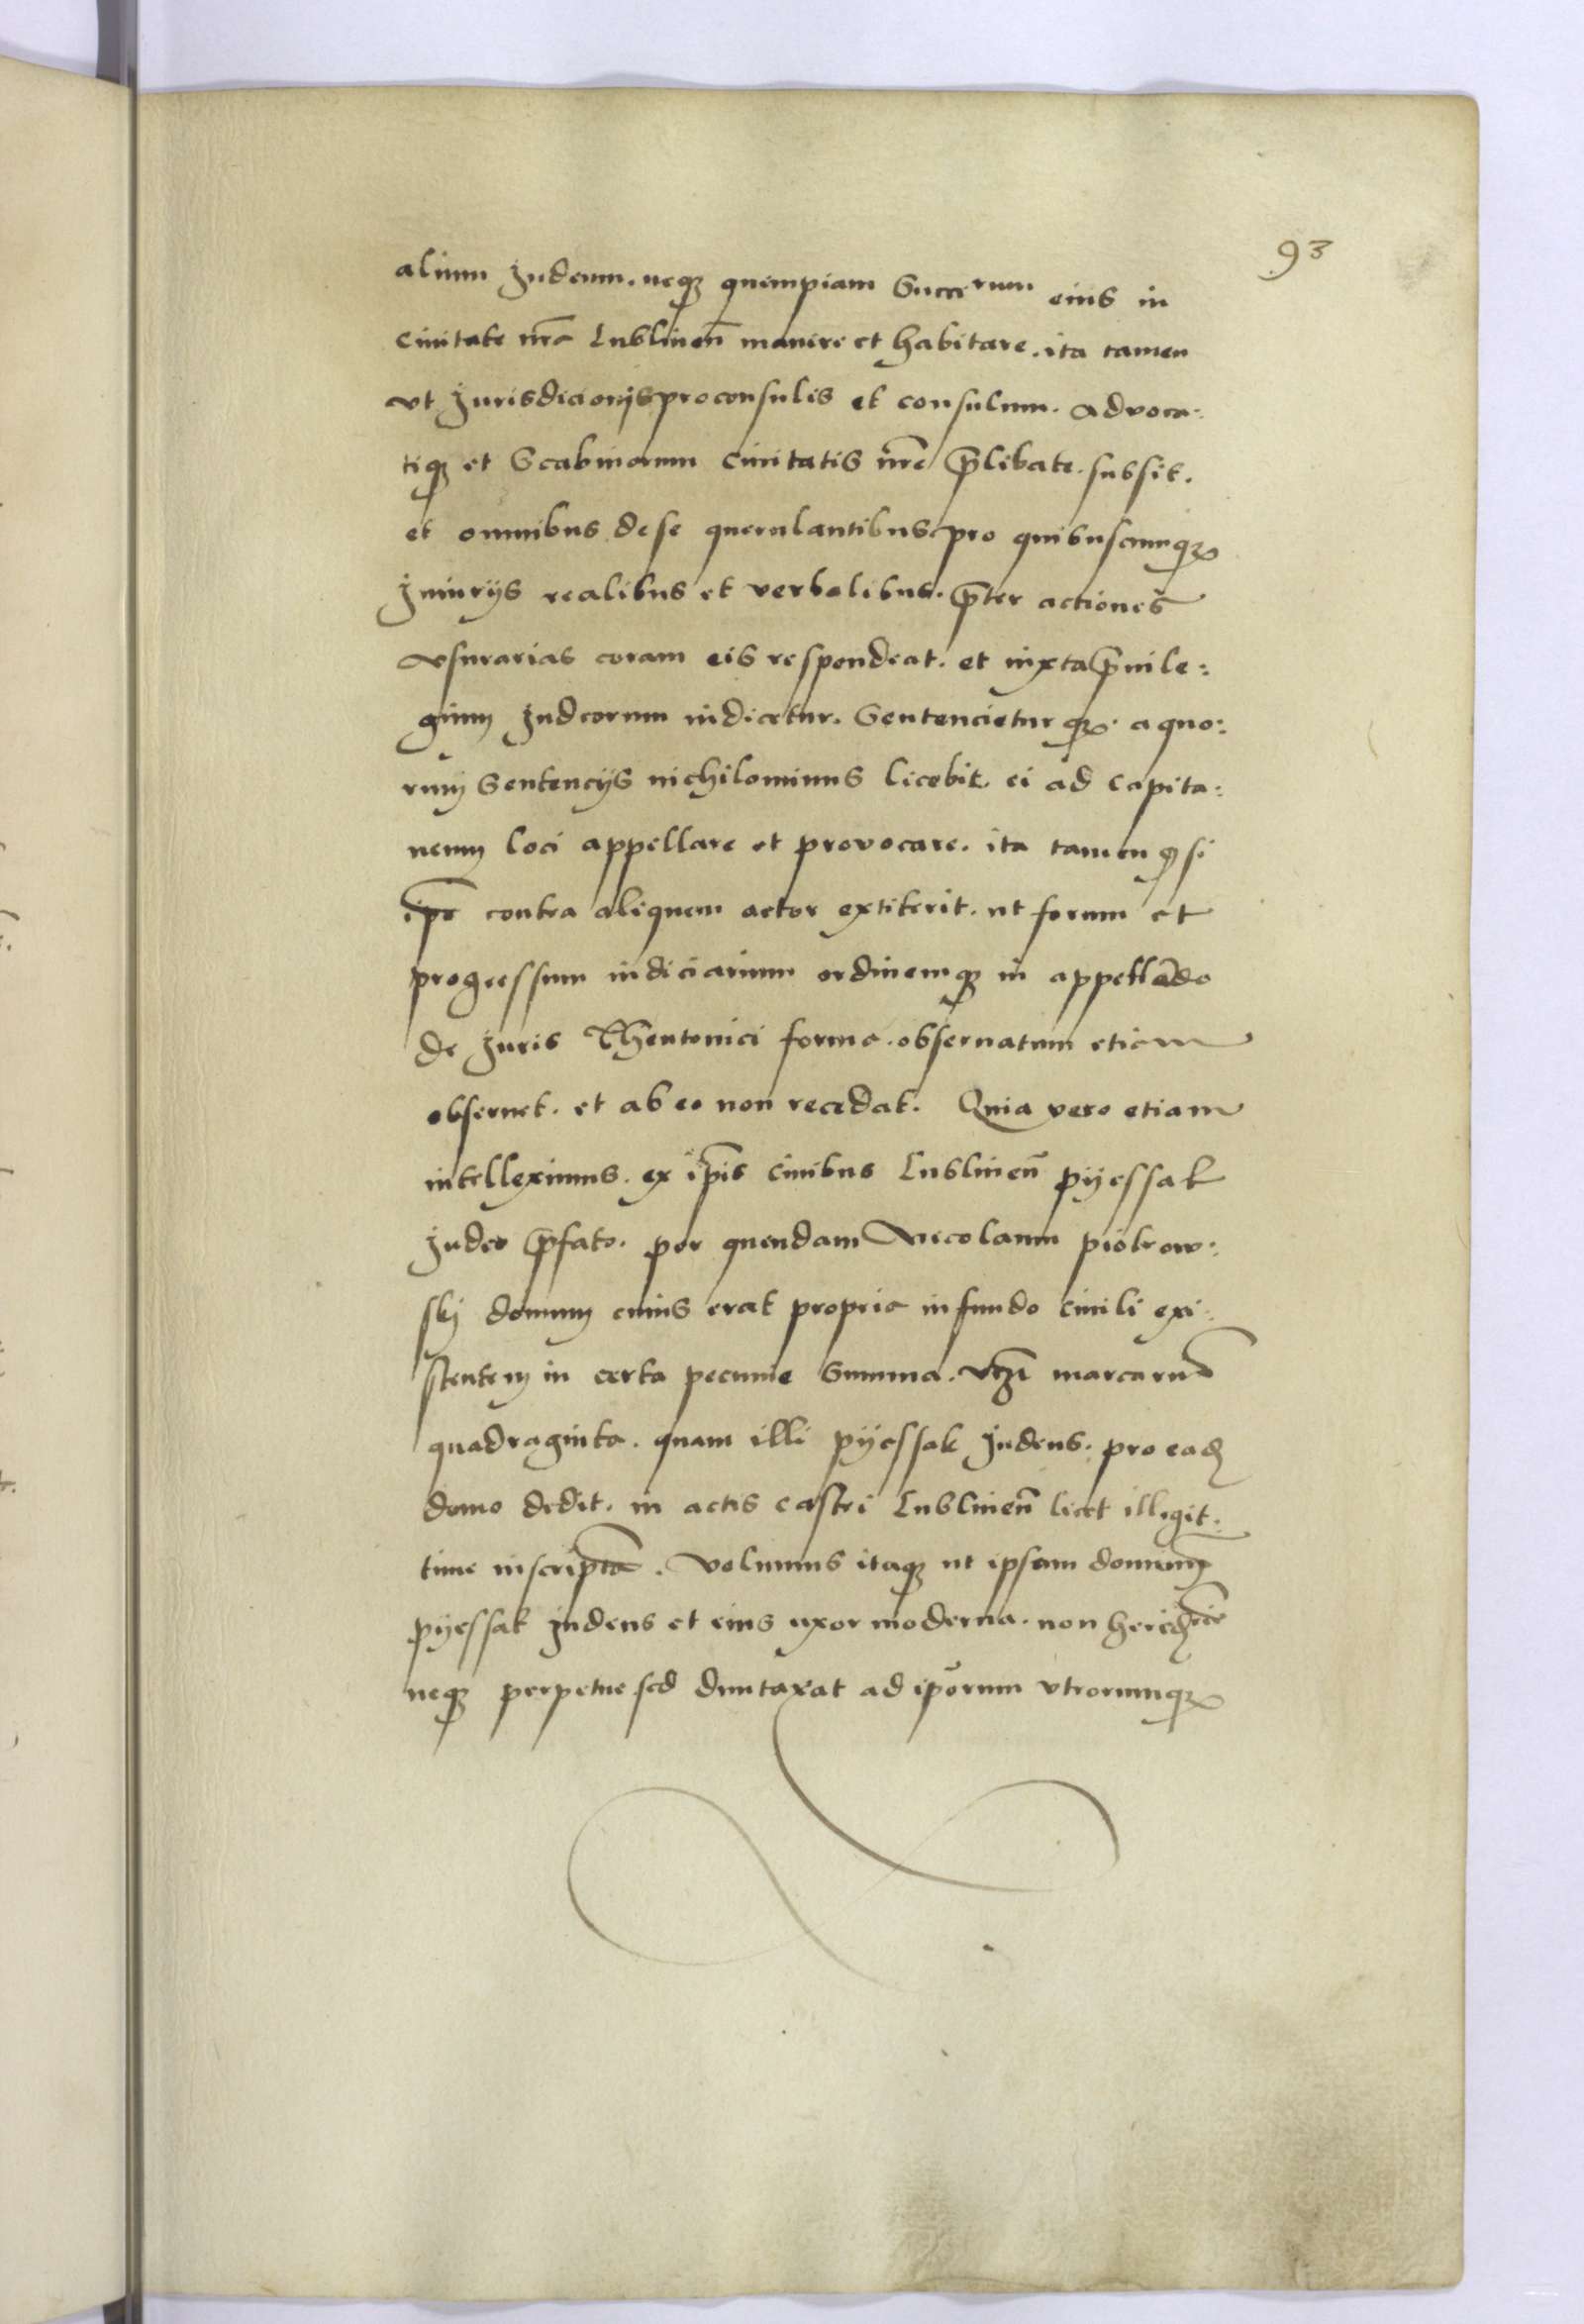 93
alium Judeum. neqꝫ quempiam Succerum eius in
Ciuitate nr̃a Lublinen̄ manere et habitare. ita tamen
vt Jurisdicionis proconsulis et consulum. Advoca:
tiqꝫ et Scabinorum Ciuitatis nr̃e p̄libate. subsit.
et omnibus de se querulantibus pro quibuscunqꝫ
Jniurijs realibus et verbalibus. p̄ter actiones
vsurarias coram eis respondeat. et iuxta p̄uile:
gium Judeorum iudicetur. Sentencietur qꝫ. a quo:
rum Sentencijs nichilominus licebit ei ad Capita:
neum loci appellare et provocare. ita tamen ꝙ si
ip̄e contra aliquem actor extiterit. ut forum et
progressum iudiciarium ordinemqꝫ in appellādo
de Juris Theutonici forma. obseruatum etiam
obseruet. et ab eo non recedat. Quia vero etiam
intelleximus. ex ip̄is Ciuibus Lublinen̄ pyessak
Judeo p̄fato. per quendam Nicolaum piotrow:
skj domum cuius erat propria in fundo Ciuili exi:
stentem in certa pecunie Summa. vtꝫ marcarum
quadraginta. quam illi pyessak Judeus. pro ead
domo dedit. in actis castri Lublinen̄ licet illegit:
time inscriptā. Volumus itaqꝫ ut ipsam domum
pyessak Judeus et eius uxor moderna. non heridcie
neqꝫ perpetue sed duntaxat ad ip̄orum vtrorumqꝫ